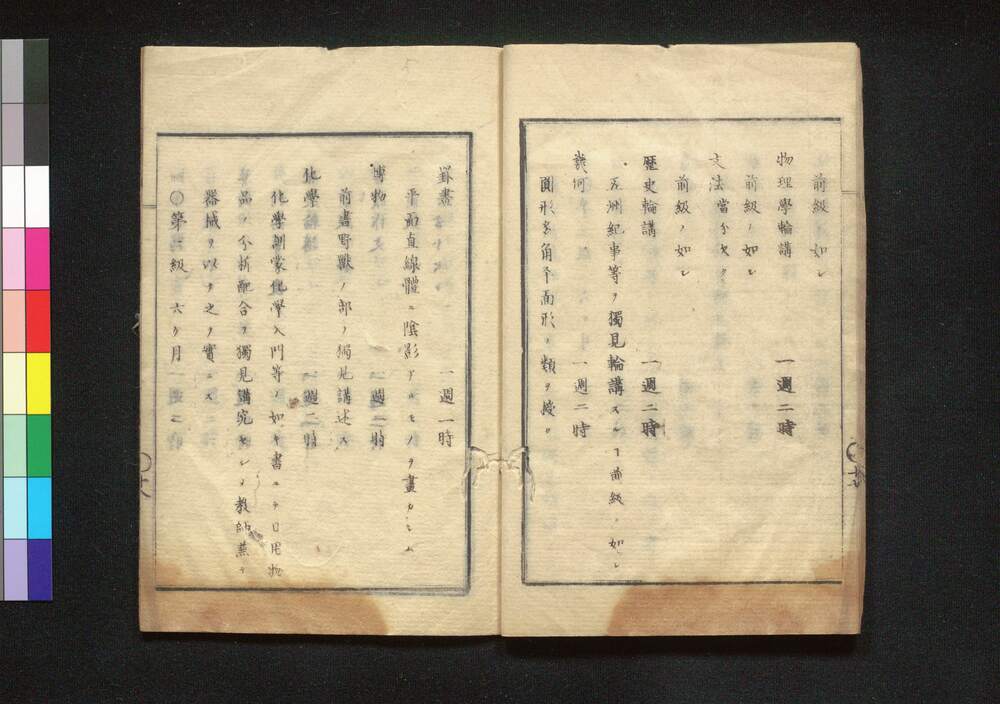 前級ノ如シ
物理學輪講 一週二時
前級ノ如シ
文法當分欠ク
前級ノ如シ
歴史輪講 一週二時
五洲紀事等ヲ獨見輪講スルヿ前級ノ如シ
幾何 一週二時
圓形多角平面形ノ類ヲ授ク
罫畫 一週一時
平面直線體ニ陰影アルモノヲ畫カシム
博物 一週二時
前書野獸ノ部ヲ獨見講述ス
化學 一週二時
化學訓蒙化學入門等ノ如キ書ニテ日用物
品ノ分析離合ヲ獨見講究セシメ教師兼テ
器械ヲ以テ之ヲ實ニス
〇第三級 六ケ月